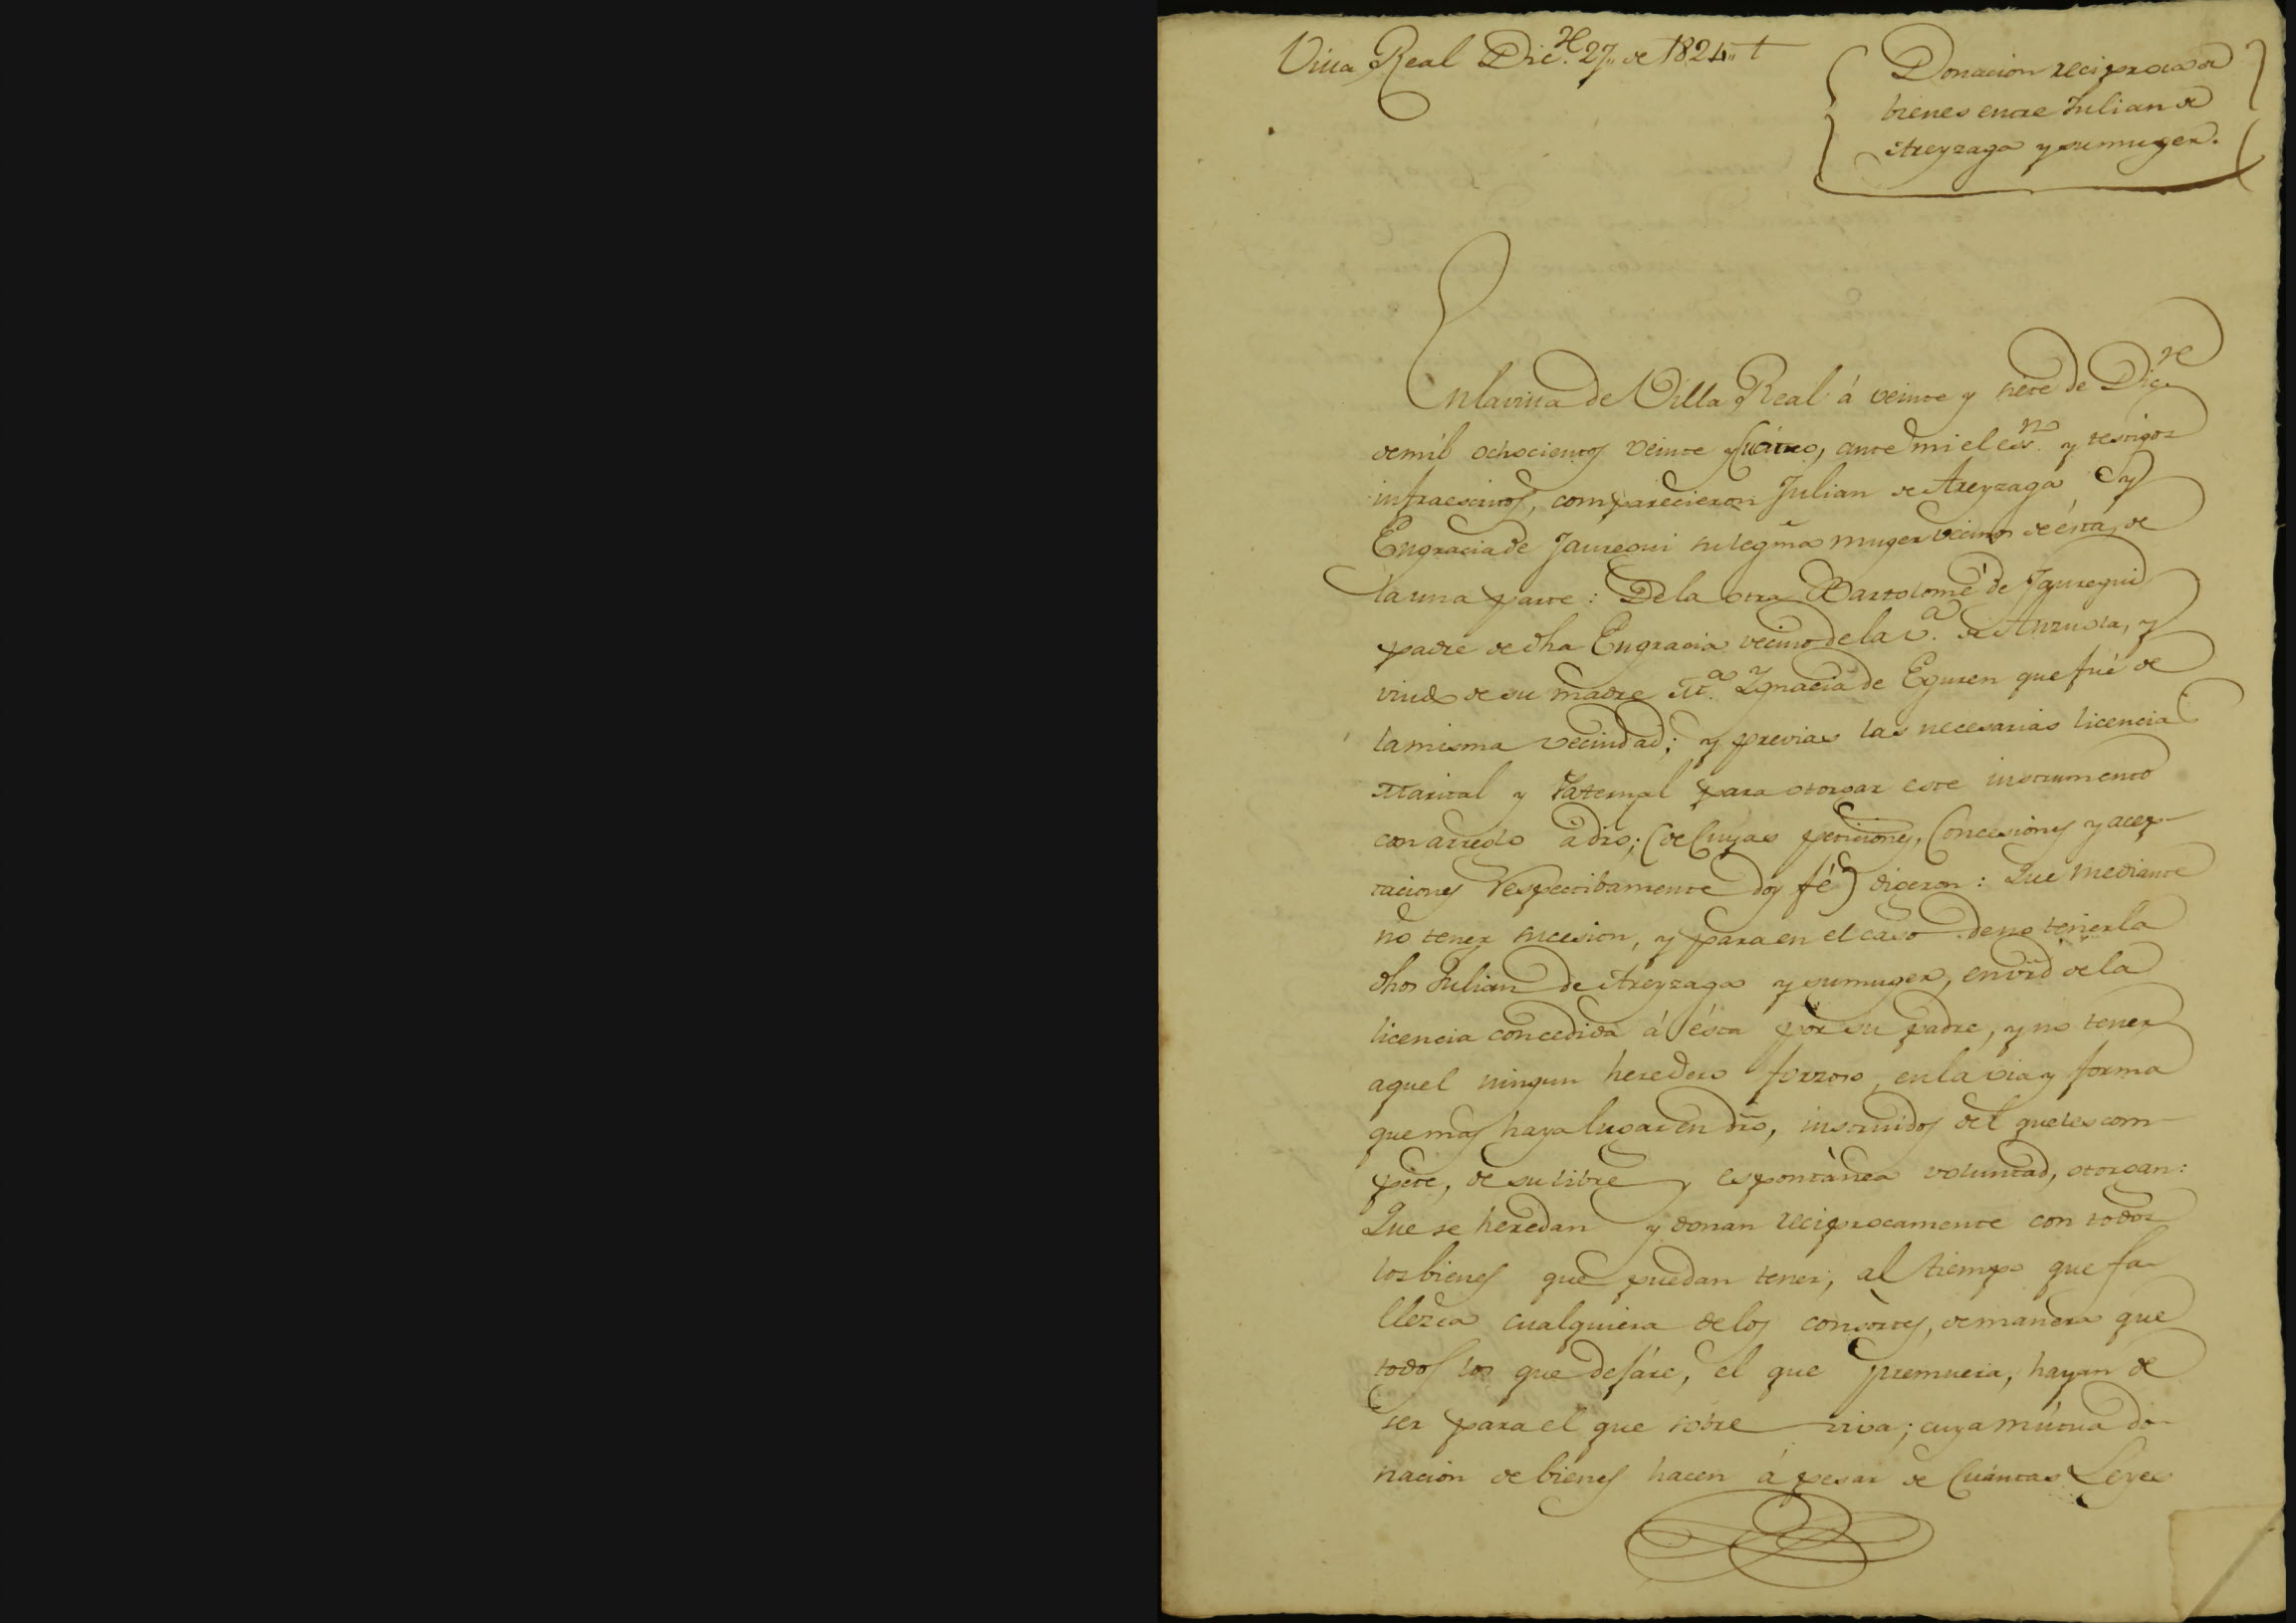 Villa Real Dic.re 27,, de 1824,, t
Donacion reciproca de
bienes entre Julian de
Areyzaga y su muger.
En la villa de Villa Real á veinte y siete de Dic.re
de mil ochocientos veinte y Cuatro, ante mi el ess.no y testigos
infraescritos, comparecieron Julian de Areyzaga, y
Engracia de Jauregui su legma muger vecinos de ésta, de
la una parte: De la otra Bartolomé de Jauregui
padre de dha Engracia vecino de la v.a de Anzuola, y
viudo de su madre M.a Ygnacia de Eguren que fué de
la misma vecindad; y previas las necesarias licencia
Marital y Paternal para otorgar este instrumento
con arreglo a dro; (de Cuyas peticiones, Concesiones y acep-
taciones respectibamente doy fé) digeron: Que mediante
no tener sucesion, y para en el caso de no tenerla
dhos Julian de Areyzaga y su muger, en vird de la
licencia concedida á ésta por su padre, y no tener
aquel ningun heredero forzoso, en la via y forma
que mas haya lugar en dro, instruidos del que les com-
pete, de su libre y espontánea voluntad, otorgan:
Que se heredan y donan reciprocamente con todos
los bienes que puedan tener, al tiempo que fa-
llezca cualquiera de los consortes, de manera que
todos los que dejáre, el que premuera, hayan de
ser para el que sobre viva; cuya mútua do-
nacion de bienes hacen á pesar de Cuantas Leyes